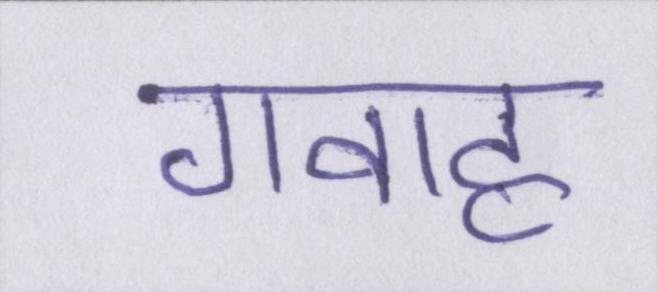 गवाह